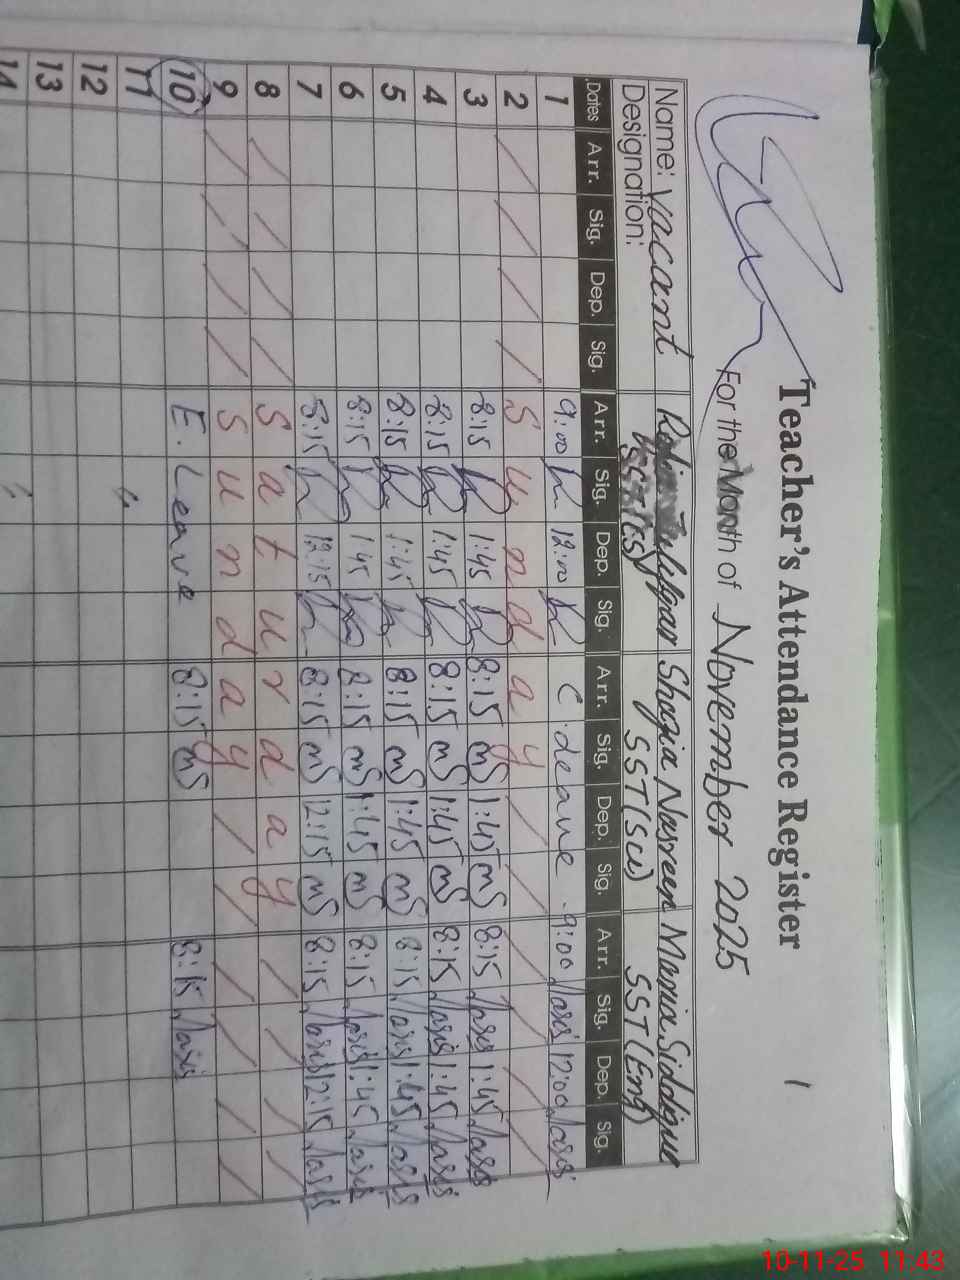 Teacher's Attendance Register
1
For the Month of November 2025
Name: Vacant Shazia Nasreen Maria Siddique
Designation: SST(Sci) SST(Eng)
Dates Arr. Sig. Dep. Sig. Arr. Sig. Dep. Sig. Arr. Sig. Dep. Sig. Arr. Sig. Dep. Sig.
1 9:00 12:00 C. Leave 9:00 12:00
2 Sunday
3 8:15 1:45 8:15 1:45 8:15 1:45
4 8:15 1:45 8:15 1:45 8:15 1:45
5 8:15 1:45 8:15 1:45 8:15 1:45
6 8:15 1:45 8:15 1:45 8:15 1:45
7 8:15 12:15 8:15 12:15 8:15 12:15
8 Saturday
9 Sunday
10 E. Leave 8:15 8:15
11
12
13
14
10-11-25 11:43